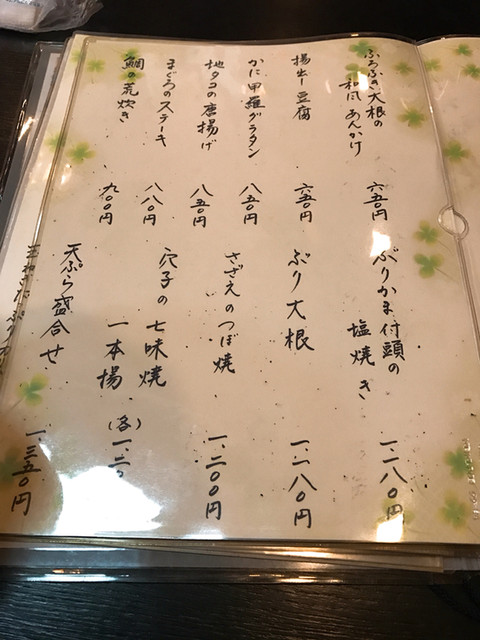 ふろふき大根の
和風あんかけ
六五〇円
揚出し豆腐
六五〇円
かに甲羅グラタン
八五〇円
地タコの唐揚げ
八五〇円
まぐろのステーキ
八八〇円
鯛の荒炊き
九〇〇円
ぶりかま付頭の
塩焼き
一、二八〇円
ぶり大根
一、一八〇円
さざえのつぼ焼
一、二〇〇円
穴子の七味焼
一本揚
(各)
天ぷら盛合せ
一、三五〇円